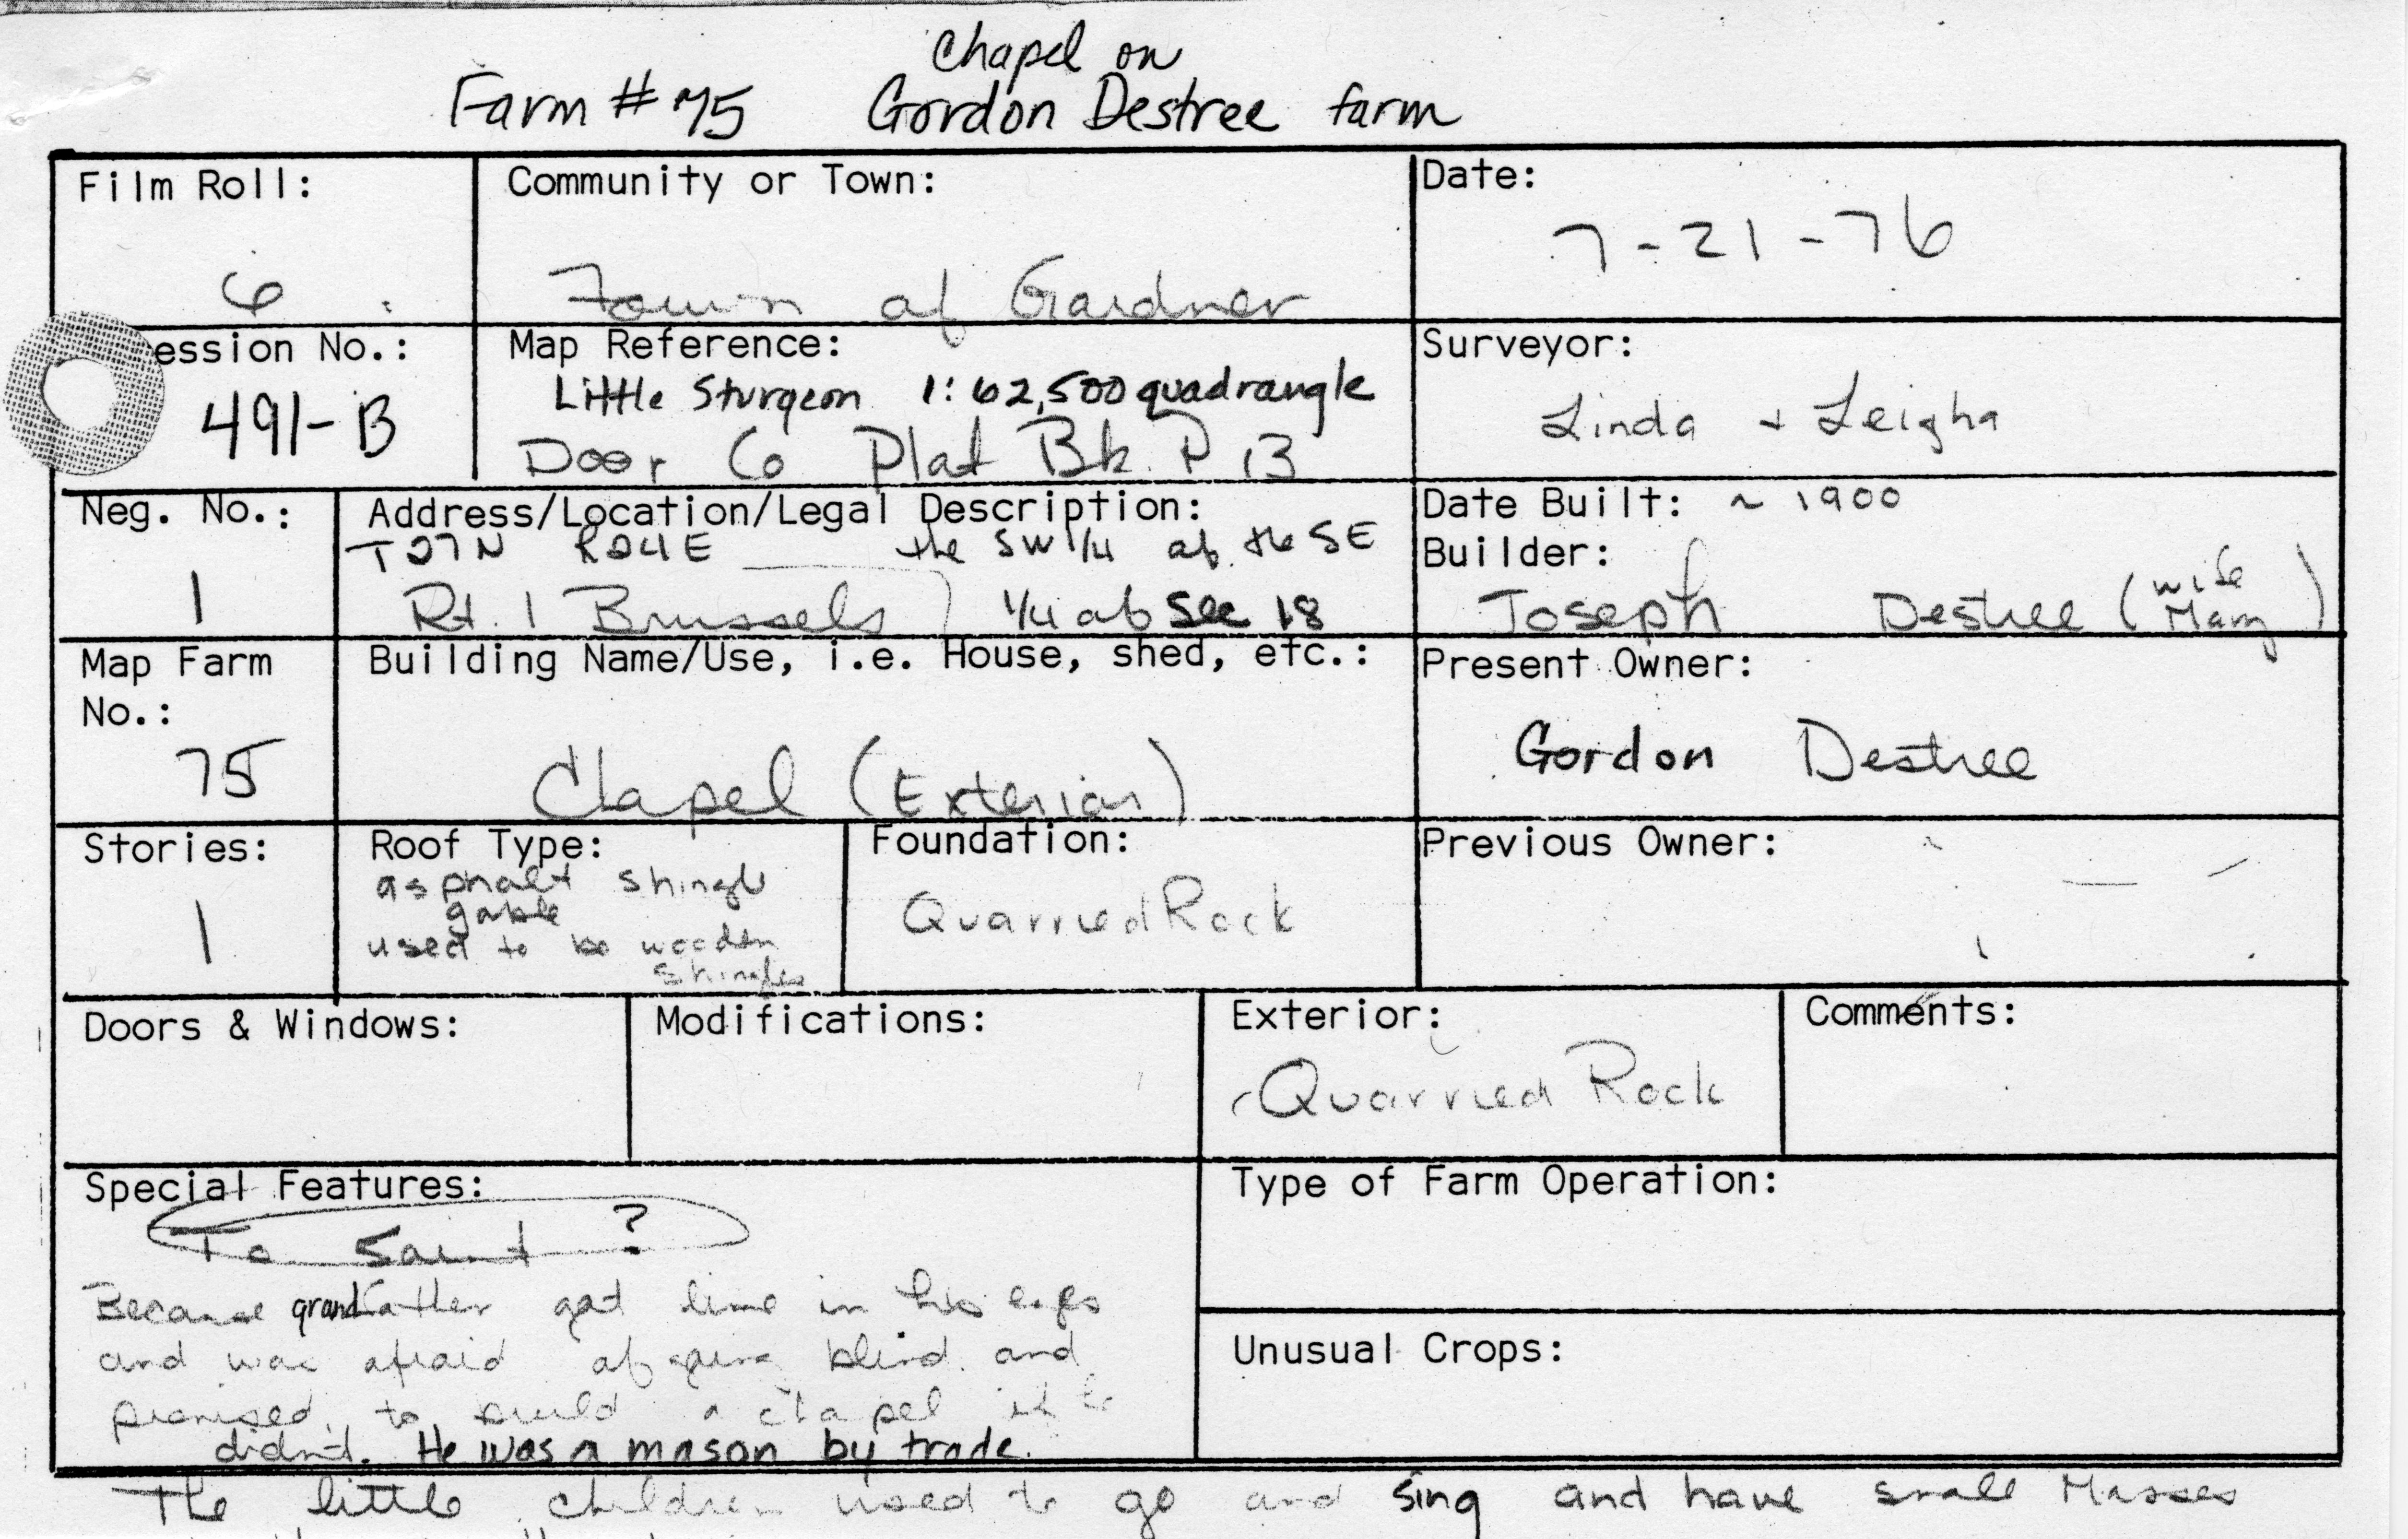 Chapel on
Farm #75 Gordon Destree farm
Film Roll:
6
Community or Town:
Town of Gardner
Date:
7-21-76
ession No.:
491-B
Map Reference:
Little Sturgeon 1:62,500 quadrangle
Door Co Plat Bk. P 13
Surveyor:
Linda + Leigha
Neg. No.:
1
Address/Location/Legal Description:
T27N R24E the SW 1/4 of the SE
Rt. 1 Brussels 1/4 of Sec 18
Date Built: ~ 1900
Builder:
Joseph Destree (wife Mary)
Map Farm
No.:
75
Building Name/Use, i.e. House, shed, etc.:
Chapel (Exterior)
Present Owner:
Gordon Destree
Stories:
1
Roof Type:
asphalt shingle
gable
used to be wooden
shingles
Foundation:
Quarried Rock
Previous Owner:
Doors & Windows:
Modifications:
Exterior:
Quarried Rock
Comments:
Special Features:
To Saint ?
Because grandfather got lime in his eyes
and was afraid of going blind and
promised to build a chapel if he
didn't. He was a mason by trade.
Type of Farm Operation:
Unusual Crops:
The little children used to go and sing and have small Masses